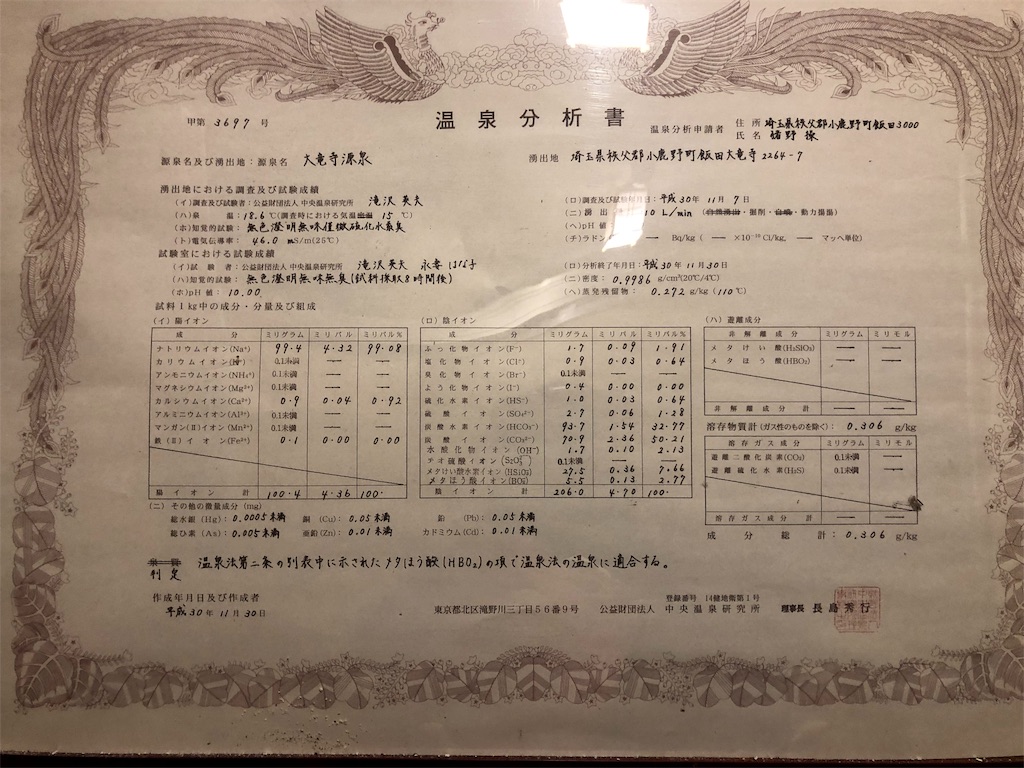 甲第 3697 号
温泉分析書
温泉分析申請者 住所 埼玉県秩父郡小鹿野町飯田3000
氏名
源泉名及び湧出地：源泉名 大竜寺源泉 湧出地 埼玉県秩父郡小鹿野町飯田大竜寺2264-7
湧出地における調査及び試験成績
(イ)調査及び試験者：公益財団法人 中央温泉研究所 滝沢英夫 (ロ)調査及び試験年月日：平成30年11月7日
(ハ)泉温：18.6℃(調査時における気温 15 ℃) (ニ)湧出 10 L/min (・掘削・・動力揚湯)
(ホ)知覚的試験：無色澄明無味僅微硫化水素臭 (ヘ)pH値 —
(ト)電気伝導率：46.0 mS/m(25℃) (チ)ラドン — Bq/kg ( — ×10⁻¹⁰Ci/kg, — マッヘ単位)
試験室における試験成績
(イ)試験者：公益財団法人 中央温泉研究所 滝沢英夫 (ロ)分析終了年月日：平成30年11月30日
(ハ)知覚的試験：無色澄明無味無臭(試料採取8時間後) (ニ)密度：0.9986 g/cm³(20℃/4℃)
(ホ)pH値：10.00 (ヘ)蒸発残留物：0.272 g/kg(110℃)
試料1kg中の成分・分量及び組成
(イ)陽イオン
成分 ミリグラム ミリバル ミリバル%
ナトリウムイオン(Na⁺) 99.4 4.32 99.08
カリウムイオン(K⁺) 0.1未満 — —
アンモニウムイオン(NH₄⁺) 0.1未満 — —
マグネシウムイオン(Mg²⁺) 0.1未満 — —
カルシウムイオン(Ca²⁺) 0.9 0.04 0.92
アルミニウムイオン(Al³⁺) 0.1未満 — —
マンガン(II)イオン(Mn²⁺) 0.1未満 — —
鉄(II)イオン(Fe²⁺) 0.1 0.00 0.00
陽イオン計 100.4 4.36 100.
(ロ)陰イオン
成分 ミリグラム ミリバル ミリバル%
ふっ化物イオン(F⁻) 1.7 0.09 1.91
塩化物イオン(Cl⁻) 0.9 0.03 0.64
臭化物イオン(Br⁻) 0.1未満 — —
よう化物イオン(I⁻) 0.4 0.00 0.00
硫化水素イオン(HS⁻) 1.0 0.03 0.64
硫酸イオン(SO₄²⁻) 2.7 0.06 1.28
炭酸水素イオン(HCO₃⁻) 93.7 1.54 32.77
炭酸イオン(CO₃²⁻) 70.9 2.36 50.21
水酸化物イオン(OH⁻) 1.7 0.10 2.13
チオ硫酸イオン(S₂O₃²⁻) 0.1未満 — —
メタけい酸水素イオン(HSiO₃⁻) 27.5 0.36 7.66
メタほう酸イオン(BO₂⁻) 5.5 0.13 2.77
陰イオン計 206.0 4.70 100.
(ハ)遊離成分
非解離成分 ミリグラム ミリモル
メタけい酸(H₂SiO₃) — —
メタほう酸(HBO₂) — —
非解離成分計 — —
溶存物質計(ガス性のものを除く)：0.306 g/kg
溶存ガス成分 ミリグラム ミリモル
遊離二酸化炭素(CO₂) 0.1未満 —
遊離硫化水素(H₂S) 0.1未満 —
溶存ガス成分計 — —
成分総計：0.306 g/kg
(ニ)その他の微量成分(mg)
総水銀(Hg)：0.0005未満 銅(Cu)：0.05未満 鉛(Pb)：0.05未満
総ひ素(As)：0.005未満 亜鉛(Zn)：0.01未満 カドミウム(Cd)：0.01未満
判定 温泉法第二条の別表中に示されたメタほう酸(HBO₂)の項で温泉法の温泉に適合する。
作成年月日及び作成者
平成30年11月30日
登録番号 14健地衛第1号
東京都北区滝野川三丁目56番9号 公益財団法人 中央温泉研究所 理事長 長島秀行